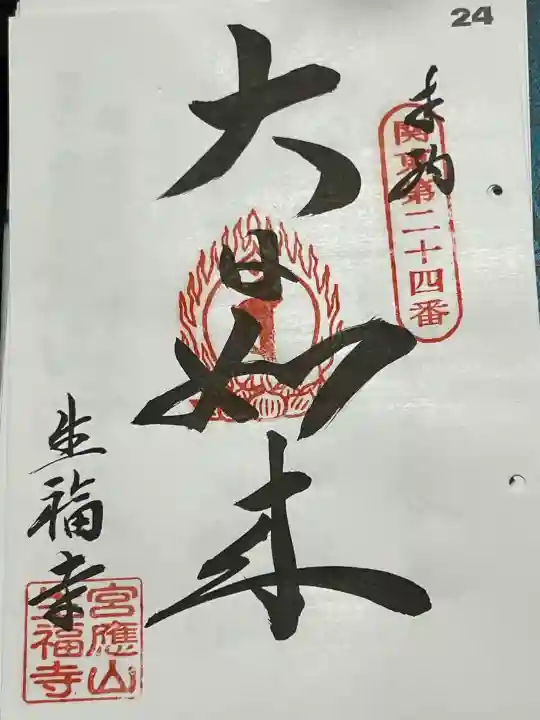 24
奉納
関東第二十四番
大日如来
生福寺
宮應山
生福寺